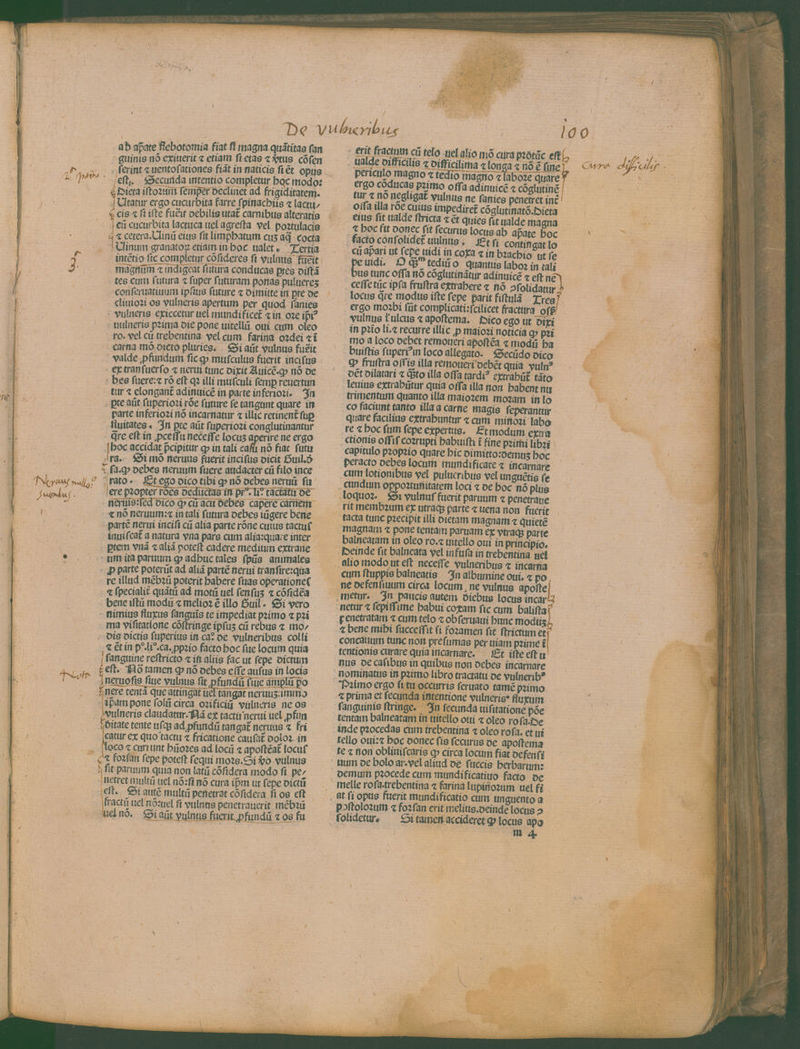 De vulneribus
100
ab aꝑate flebotomia fiat si magna quãtitas san
guinis nõ exiuerit ⁊ etiam si etas ⁊ ꝟtus cõsen
serint ⁊ uentosationes fiãt in naticis si ẽt opus
est. Secunda intentio completur hoc modo:
Dieta istorum semper declinet ad frigiditatem.
Utatur ergo cucurbita farre spinachiis ⁊ lactu
cis ⁊ si iste fuẽit debilis utat̃ carnibus alteratis
cũ cucurbita lactuca uel agresta vel portulacis
⁊ cetera. Uinũ eius sit limphatum cuȝ aq̃ cocta
Uinum granatoꝝ etiam in hoc ualet. Tertia
intẽtio sic completur cõsideres si vulnus fuẽit
magnũm ⁊ indigeat sutura conducas ꝑtes distã
tes cum sutura ⁊ super suturam ponas puluereȝ
conseruatiuum ipsius suture ⁊ dimitte in ꝑte de
cliuiori os vulneris apertum per quod sanies
vulneris exiccetur uel mundificet̃ ⁊ in ore ip̃iꝰ
uulneris prima die pone uitellũ oui cum oleo
ro. vel cũ trebentina vel cum farina ordei ⁊ ĩ
carna mõ dicto pluries. Si aũt vulnus fuẽit
valde ꝓfundum sic ꝙ musculus fuerit incisus
ex transuerso ⁊ nerui tunc dixit Auicẽ. ꝙ nõ de
bes suere: ⁊ rõ est qꝛ illi musculi semꝑ reuertun
tur ⁊ elongant̃ adinuicẽ in parte inferiori. In
ꝑte aũt superiori rõe suture se tangunt quare in
parte inferiori nõ incarnatur ⁊ illic retinent̃ suꝑ
fluitates. In ꝑte aũt superiori conglutinantur
q̃re est in ꝓcessu necesse locuȝ aperire ne ergo
hoc accidat p̃cipitur ꝙ in tali casu nõ fiat sutu
ra. Si mõ neruus fuerit incisus dicit Guil. õ
sa. ꝙ debes neruum suere audacter cũ filo ince
rato. Et ego dico tibi ꝙ nõ debes neruũ su
ere propter rões deductas in pr°. li°. tactatu de
neruis: sed dico ꝙ cũ acu debes capere carnem
⁊ nõ neruum: ⁊ in tali sutura debes iũgere bene
partẽ nerui incisi cũ alia parte rõne cuius tactuſ
inuiscat̃ a natura vna pars cum alia: quare inter
ꝑtem vnã ⁊ aliã potest̃ cadere medium extrane
um ita paruum ꝙ adhuc tales spũs animales
ꝓ parte poterũt ad aliã partẽ nerui transire: qua
re illud mẽbꝛũ poterit habere suas operationeſ
⁊ specialiẽ quãtũ ad motũ uel sensuȝ ⁊ cõsidẽa
bene istũ modũ ⁊ melior ẽ illo Guil. Si vero
nimius fluxus sanguĩs te impediat primo ⁊ pri
ma visitatione cõstringe ipsuȝ cũ rebus ⁊ mo
dis dictis superius in ca°. de vulneribus colli
⁊ ẽt in p°. li°. ca. ꝓprio facto hoc sue locum quia
sanguine restricto ⁊ in aliis fac ut sepe dictum
est. Nõ tamen ꝙ nõ debes esse ausus in locis
neruosis siue vulnus sit ꝓfundũ siue amplũ ꝑo
nere tentã que attingat uel tangat neruuȝ: immo
ipam pone solũ circa orificiũ vulneris ne os
vulneris claudatur. Nã ex tactu nerui uel ꝓfun
ditate tente usqȝ ad ꝓfundũ tangat̃ neruus ⁊ fri
catur ex quo tactu ⁊ fricatione causat̃ dolor in
loco ⁊ currunt hũores ad locũ ⁊ apostẽat̃ locuſ
⁊ forsan sepe potest sequi mors. Si ꝟo vulnus
sit paruum quia non latũ cõsidera modo si pe
netret multũ uel nõ: si nõ cura ipm ut sepe dictũ
est. Si autẽ multũ penetrat cõsidera si os est
fractũ uel nõ: uel si vulnus penetrauerit mẽbꝛũ
uel nõ. Si aũt vulnus fuerit ꝓfundũ ⁊ os fu
3.
Neruus
suendus.
erit fractum cũ telo uel alio mõ cura prõtũc est
ualde difficilis ⁊ difficilima ⁊ longa ⁊ nõ ẽ sine
periculo magno ⁊ tedio magno ⁊ labore quare
ergo cõducas primo ossa adinuicẽ ⁊ cõglutinẽ
tur ⁊ nõ negligat̃ vulnus ne sanies penetret int̃
ossa illa rõe cuius impediret̃ cõglutinatõ. Dieta
eius sit ualde stricta ⁊ ẽt quies sit ualde magna
⁊ hoc sit donec sit securus locus ab aꝑate hoc
facto consolidet̃ uulnus. Et si contingat lo
cũ apari ut sepe uidi in coxa ⁊ in brachio ut se
pe uidi. O qᷓᵐ tediũ o quantus labor in tali
bus tunc ossa nõ cõglutinãtur adinuicẽ ⁊ est nẽ
cesse tũc ipsa frustra extrahere ⁊ nõ ↄsolidatur
locus q̃re modus iste sepe parit fistulã Tres
ergo morbi sũt complicati: scilicet fractura ossꝭ
vulnus ⁊ ulcus ⁊ apostema. Dico ego ut dixi
in prio li. ⁊ recurre illic ꝓ maiori noticia ꝙ pri
mo a loco debet remoueri apostẽa ⁊ modũ ha
buistis superiꝰ in loco allegato. Secũdo dico
ꝙ frustra ossis illa remoueri debẽt quia vulnꝰ
dẽt dilatari ⁊ q̃to illa ossa tardiꝰ extrahũt̃ tãto
leuius extrahũtur quia ossa illa non habent nu
trimentum quanto illa maiorem moram in lo
co faciunt tanto illa a carne magis seperantur
quare facilius extrahuntur ⁊ cum minori labo
re ⁊ hoc sum sepe expertus. Et modum extra
ctionis ossiſ corrupti habuisti ĩ fine primi libri
capitulo proprio quare hic dimitto: demuȝ hoc
peracto debes locum mundificare ⁊ incarnare
cum lotionibus vel puluẽribus vel unguẽtis se
cundum opportunitatem loci ⁊ de hoc nõ plus
loquor. Si vulnuſ fuerit paruum ⁊ penetraue
rit membrum ex utraqȝ parte ⁊ uena non fuerit
tacta tunc precipit illi dietam magnam ⁊ quietẽ
magnam ⁊ pone tentam paruam ex vtraqȝ parte
balneatam in oleo ro. ⁊ uitello oui in principio.
Deinde sit balneata vel infusa in trebentina uel
alio modo ut est necesse vulneribus ⁊ incarna
cum stuppis balneatis In albumine oui. ⁊ po
ne defensiuum circa locum ne vulnus aposte
metur. In paucis autem diebus locus incar
netur ⁊ sepissime habui coxam sic cum balista
penetratam ⁊ cum telo ⁊ obseruaui hunc moduȝ
⁊ bene mihi successit si foramen sit strictum et
concauum tunc non presumas per uiam prime ĩ
tentionis curare quia incarnare. Et iste est u
nus de casibus in quibus non debes incarnare
nominatus in primo libro tractatu de vulneribꝰ
Primo ergo si tu occurris seruato tamẽ primo
⁊ prima et secunda intentione vulneris fluxum
sanguinis stringe. In secunda uisitatione põe
tentam balneatam in uitello oui ⁊ oleo rosa. De
inde procedas cum trebentina ⁊ oleo rosa. et ui
tello oui: ⁊ hoc donec sis securus de apostema
te ⁊ non obliuiscaris ꝙ circa locum fiat defensi
uum de bolo ar. vel aliud de succis herbarum:
demum procede cum mundificatiuo facto de
melle rosa. trebentina ⁊ farina lupinorum uel fi
at si opus fuerit mundificatio cum unguento a
postolorum ⁊ forsan erit melius. deinde locus ↄ
solidetur. Si tamen accideret ꝙ locus apo
m 4
Cura difficilis